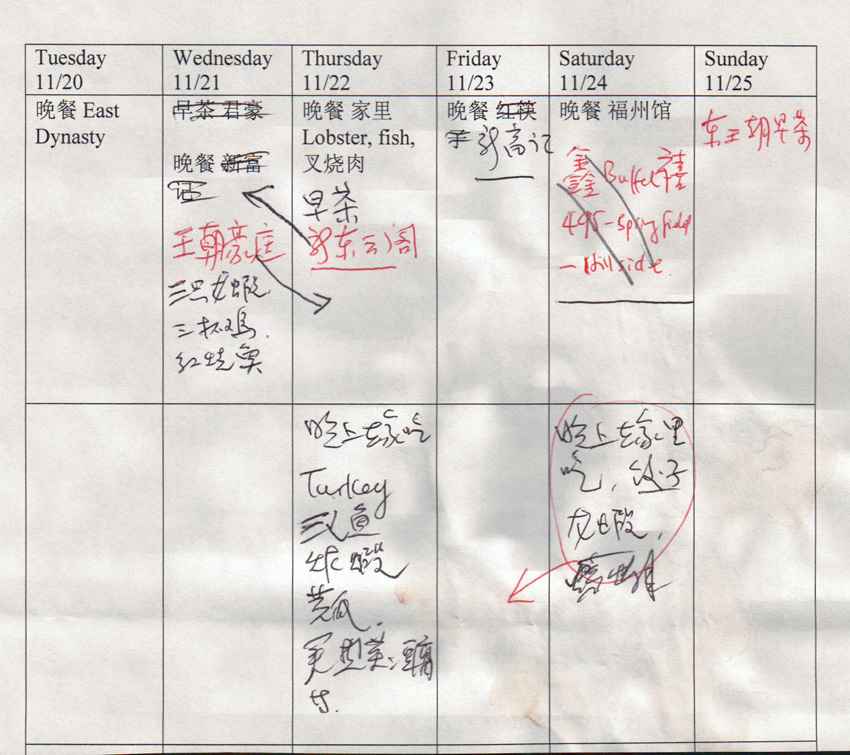 Tuesday
11/20
Wednesday
11/21
Thursday
11/22
Friday
11/23
Saturday
11/24
Sunday
11/25
晚餐 East
Dynasty
早茶 君豪
晚餐 新富
记
王朝豪庭
三杯鸡.
红烧鱼
晚餐 家里
Lobster, fish,
叉烧肉
早茶
新东云阁
晚餐 红筷
子 新高记
晚餐 福州馆
鑫 Buffet 禧
495-Springfield
- Hillside.
东王朝早茶
晚上在家吃
Turkey
鱼
炸蝦
黄瓜.
晚上在家里
吃, 饺子
龙蝦,